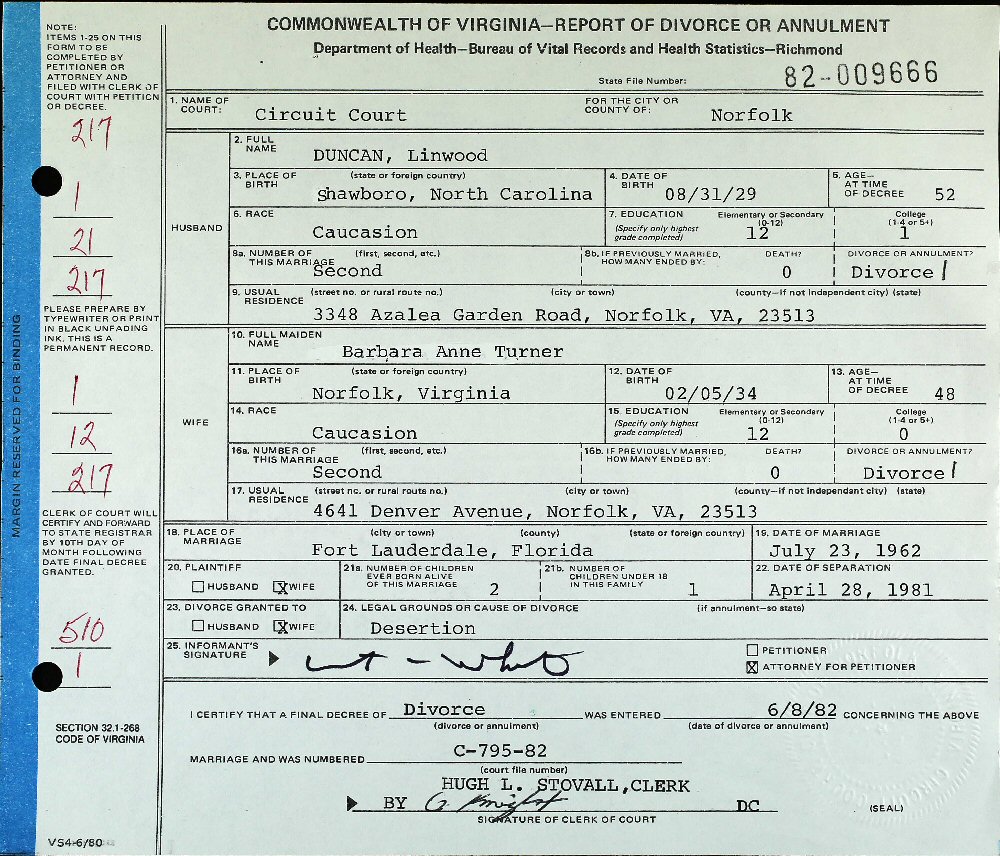 COMMONWEALTH OF VIRGINIA—REPORT OF DIVORCE OR ANNULMENT
Department of Health—Bureau of Vital Records and Health Statistics—Richmond
State File Number: 82-009666
NOTE:
ITEMS 1-25 ON THIS
FORM TO BE
COMPLETED BY
PETITIONER OR
ATTORNEY AND
FILED WITH CLERK OF
COURT WITH PETITION
OR DECREE.
217
1
21
217
PLEASE PREPARE BY
TYPEWRITER OR PRINT
IN BLACK UNFADING
INK. THIS IS A
PERMANENT RECORD.
1
12
217
CLERK OF COURT WILL
CERTIFY AND FORWARD
TO STATE REGISTRAR
BY 10TH DAY OF
MONTH FOLLOWING
DATE FINAL DECREE
GRANTED.
510
1
SECTION 32.1-268
CODE OF VIRGINIA
VS4-6/80
MARGIN RESERVED FOR BINDING
1. NAME OF COURT: Circuit Court FOR THE CITY OR COUNTY OF: Norfolk
HUSBAND
2. FULL NAME DUNCAN, Linwood
3. PLACE OF BIRTH (state or foreign country) Shawboro, North Carolina 4. DATE OF BIRTH 08/31/29 5. AGE— AT TIME OF DECREE 52
6. RACE Caucasion 7. EDUCATION (Specify only highest grade completed) Elementary or Secondary (0-12) 12 College (1-4 or 5+) 1
8a. NUMBER OF THIS MARRIAGE (first, second, etc.) Second 8b. IF PREVIOUSLY MARRIED, HOW MANY ENDED BY: DEATH? 0 DIVORCE OR ANNULMENT? Divorce 1
9. USUAL RESIDENCE (street no. or rural route no.) (city or town) (county—if not independent city) (state)
3348 Azalea Garden Road, Norfolk, VA, 23513
WIFE
10. FULL MAIDEN NAME Barbara Anne Turner
11. PLACE OF BIRTH (state or foreign country) Norfolk, Virginia 12. DATE OF BIRTH 02/05/34 13. AGE— AT TIME OF DECREE 48
14. RACE Caucasion 15. EDUCATION (Specify only highest grade completed) Elementary or Secondary (0-12) 12 College (1-4 or 5+) 0
16a. NUMBER OF THIS MARRIAGE (first, second, etc.) Second 16b. IF PREVIOUSLY MARRIED, HOW MANY ENDED BY: DEATH? 0 DIVORCE OR ANNULMENT? Divorce 1
17. USUAL RESIDENCE (street no. or rural route no.) (city or town) (county—if not independent city) (state)
4641 Denver Avenue, Norfolk, VA, 23513
18. PLACE OF MARRIAGE (city or town) (county) (state or foreign country) Fort Lauderdale, Florida 19. DATE OF MARRIAGE July 23, 1962
20. PLAINTIFF HUSBAND X WIFE 21a. NUMBER OF CHILDREN EVER BORN ALIVE OF THIS MARRIAGE 2 21b. NUMBER OF CHILDREN UNDER 18 IN THIS FAMILY 1 22. DATE OF SEPARATION April 28, 1981
23. DIVORCE GRANTED TO HUSBAND X WIFE 24. LEGAL GROUNDS OR CAUSE OF DIVORCE (if annulment—so state) Desertion
25. INFORMANT'S SIGNATURE PETITIONER
X ATTORNEY FOR PETITIONER
I CERTIFY THAT A FINAL DECREE OF Divorce WAS ENTERED 6/8/82 CONCERNING THE ABOVE
(divorce or annulment) (date of divorce or annulment)
MARRIAGE AND WAS NUMBERED C-795-82
(court file number)
HUGH L. STOVALL, CLERK
BY G. Knight DC (SEAL)
SIGNATURE OF CLERK OF COURT